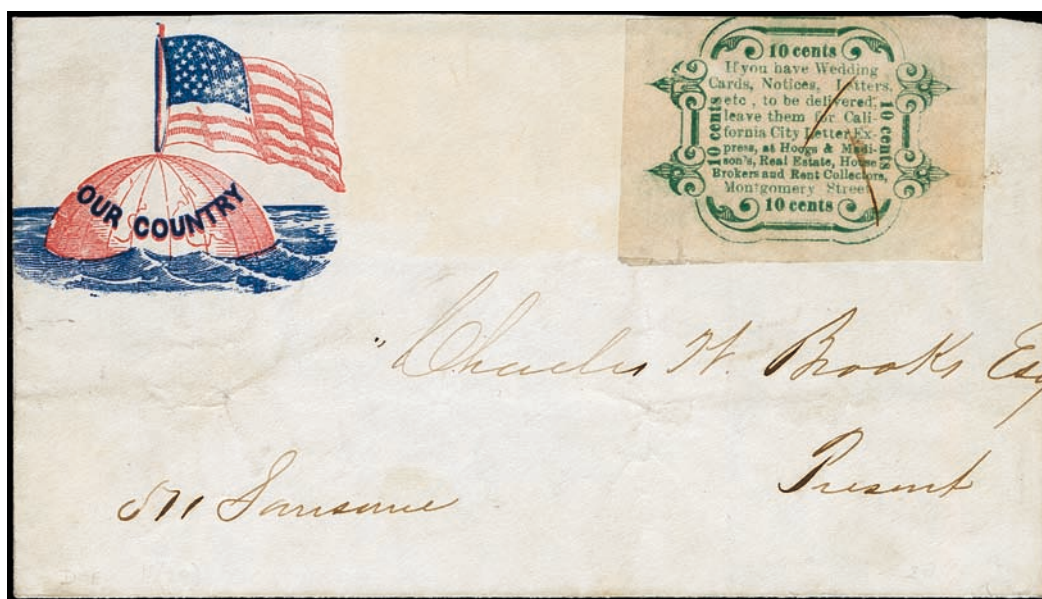 OUR COUNTRY
10 cents
If you have Wedding
Cards, Notices, Letters,
etc., to be delivered,
leave them for Cali-
fornia City Letter Ex-
press, at Hoogs & Madi-
son's, Real Estate, House
Brokers and Rent Collectors,
Montgomery Street
10 cents
10 cents
10 cents
Charles W. Brooks Esq
Present
511 Sansome